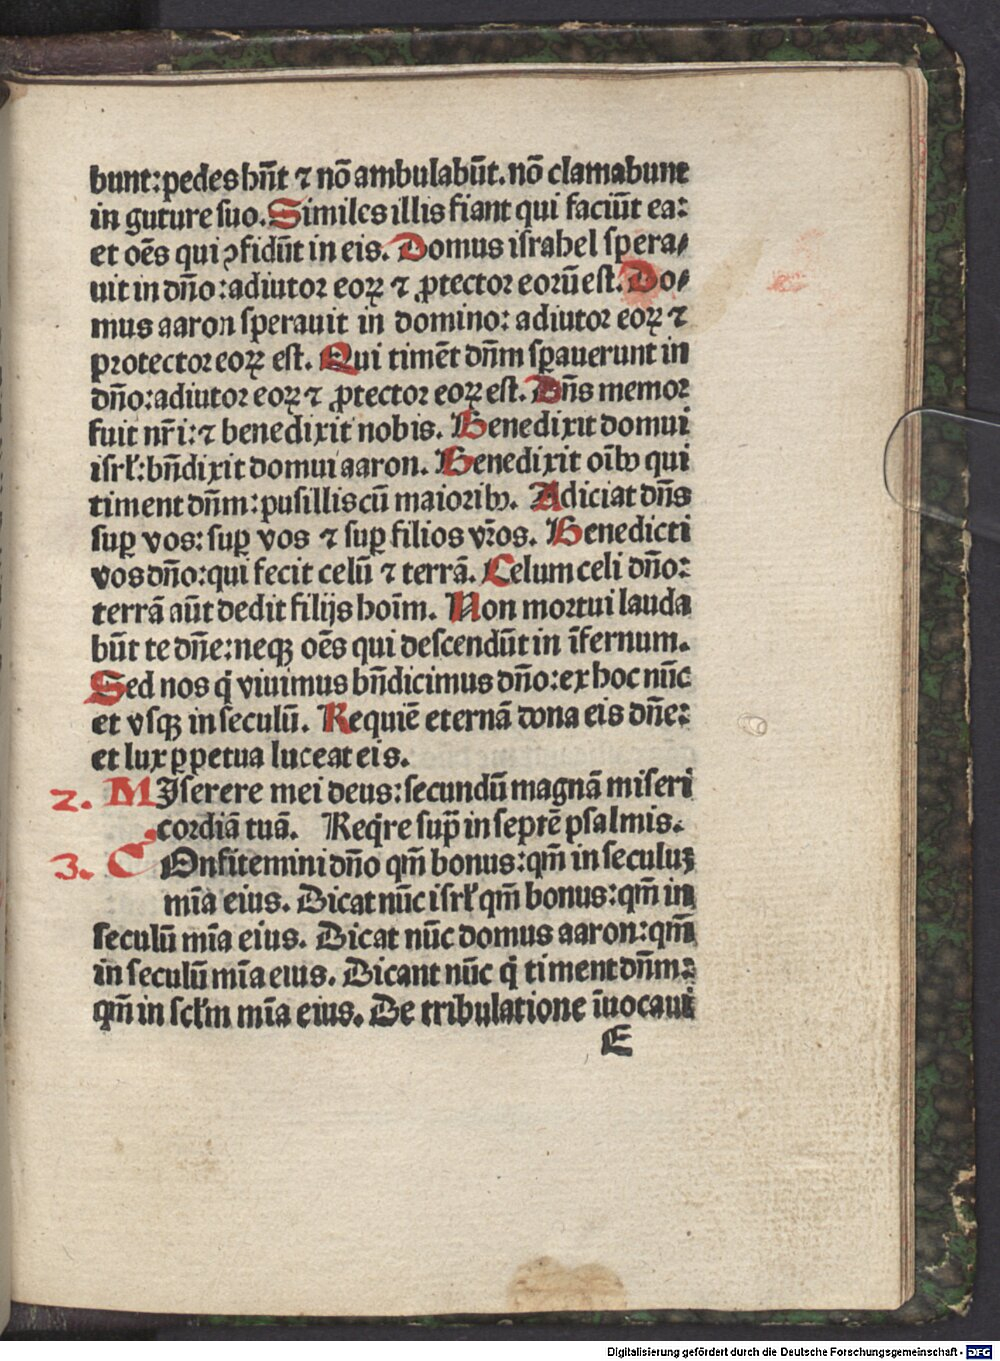 bunt: pedes hn̄t ⁊ nō ambulabūt. nō clamabunt
in guture suo. Similes illis fiant qui faciūt ea:
et oēs qui ꝯfidūt in eis. Domus israhel spera⸗
uit in dn̄o: adiutor eoꝝ ⁊ ꝓtector eorū est. Do⸗
mus aaron sperauit in domino: adiutor eoꝝ ⁊
protector eoꝝ est. Qui timēt dn̄m sꝑauerunt in
dn̄o: adiutor eoꝝ ⁊ ꝓtector eoꝝ est. Dn̄s memor
fuit nr̄i: ⁊ benedixit nobis. Benedixit domui
isrl̄: bn̄dixit domui aaron. Benedixit oīb⁹ qui
timent dn̄m: pusillis cū maiorib⁹. Adiciat dn̄s
suꝑ vos: suꝑ vos ⁊ suꝑ filios vr̄os. Benedicti
vos dn̄o: qui fecit celū ⁊ terrā. Celum celi dn̄o:
terrā aūt dedit filijs hoīm. Non mortui lauda
būt te dn̄e: neqꝫ oēs qui descendūt in īfernum.
Sed nos q̇ viuimus bn̄dicimus dn̄o: ex hoc nūc
et vsqꝫ in seculū. Requiē eternā dona eis dn̄e:
et lux ꝑpetua luceat eis.
2. MIserere mei deus: secundū magnā miseri
cordiā tuā. Req̇re sup̄ in septē psalmis.
3. COnfitemini dn̄o qm̄ bonus: qm̄ in seculuꝫ
mīa eius. Dicat nūc isrl̄ qm̄ bonus: qm̄ in
seculū mīa eius. Dicat nūc domus aaron: qm̄
in seculū mīa eius. Dicant nūc q̇ timent dn̄m:
qm̄ in scl̄m mīa eius. De tribulatione īuocaui
E
Digitalisierung gefördert durch die Deutsche Forschungsgemeinschaft - DFG